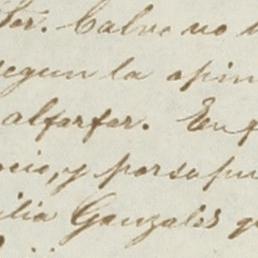 Calvo no
segun la opin
alfarfar. En
ocio, y porsupu
ilia Gonzales q